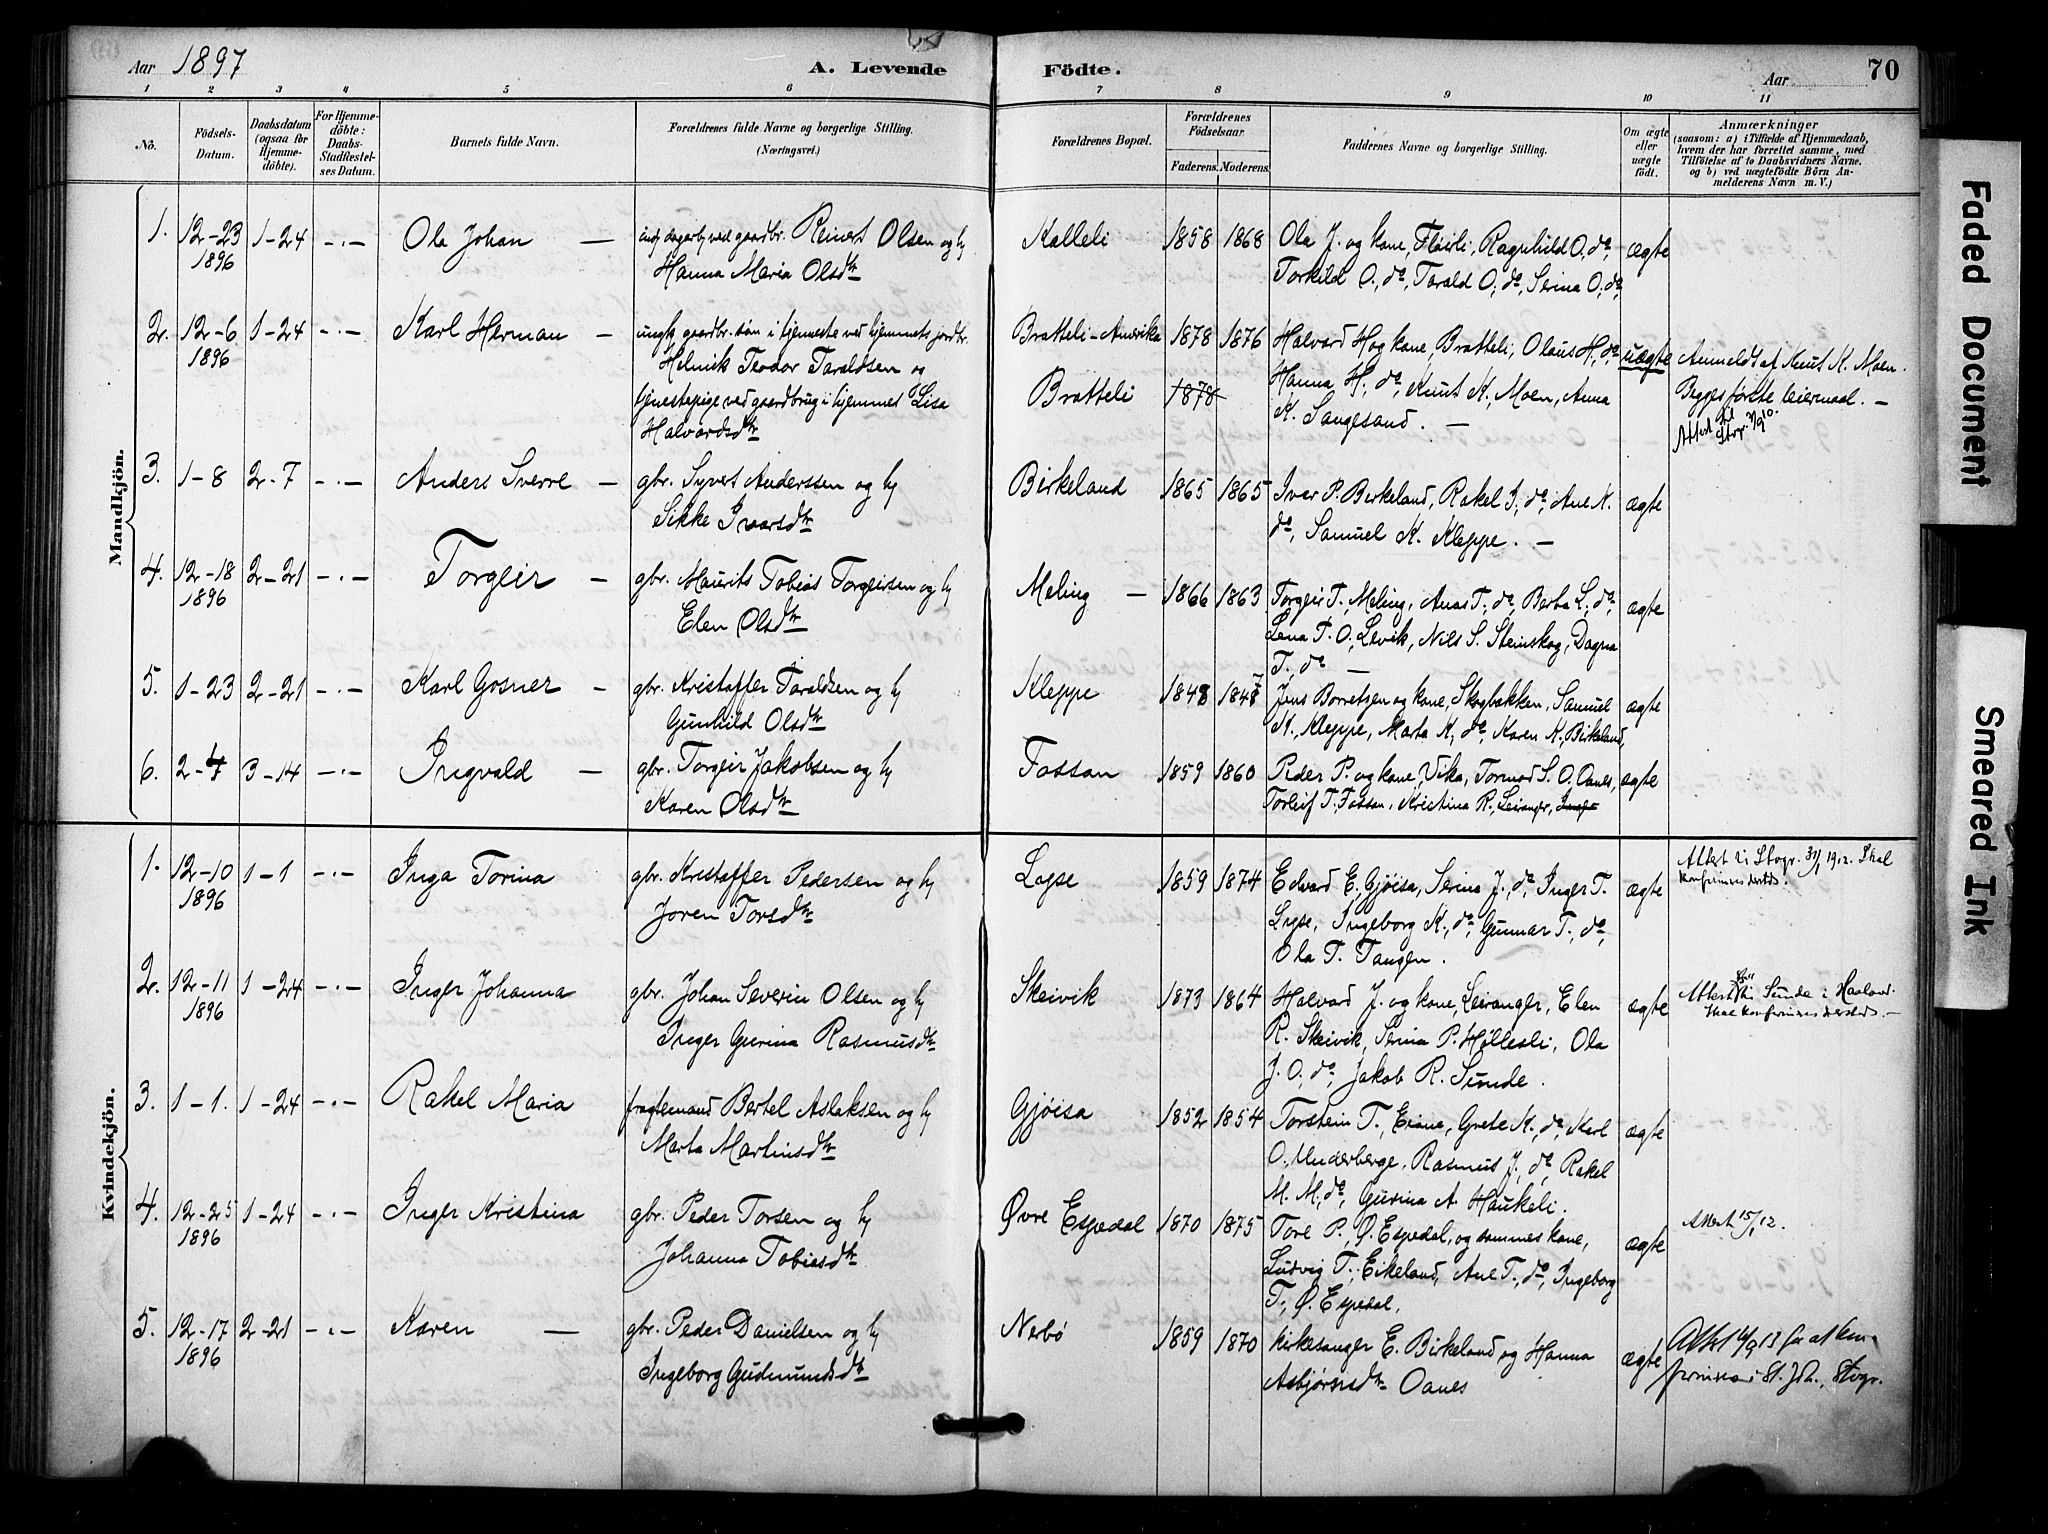 Aar 1897
A. Levende Födte.
Aar
70
1 2 3 4 5 6 7 8 9 10 11
No.
Födsels-Datum.
Daabsdatum (ogsaa for Hjemmedöbte).
For Hjemmedöbte: Daabs-Stadfæstelses Datum.
Barnets fulde Navn.
Forældrenes fulde Navne og borgerlige Stilling. (Næringsvei.)
Forældrenes Bopæl.
Forældrenes Födselsaar.
Faderens. Moderens.
Faddernes Navne og borgerlige Stilling.
Om ægte eller uægte födt.
Anmærkninger
(saasom: a) i Tilfælde af Hjemmedaab, hvem der har forrettet samme, med Tilföielse af to Daabsvidners Navne. og b) ved uægtefödte Börn Anmelderens Navn m. V.)
Mandkjön.
1. 12-23 1896 1-24 -"- Ola Johan — gaardbr. Reinert Olsen og h
Hanna Maria Olsdtr
Kalleli 1858 1868
Ola J. og kone, Fløirli, Ragnhild O., do,
Torkild O., do, Tarald O., do, Serina O., do,
ægte
2. 12-6 1896 1-24 -"- Karl Herman — ungk. gaardbr. søn i tjeneste ved hjemmets jordbr.
Helmik Teodor Taraldsen og
tjenestepige ved gaardbrug i hjemmet Lisa
Halvardsdtr
Bratteli-Amerika 1878 1876
Bratteli 1878
Halvard H. og kone, Bratteli, Olaus H., do
Hanna H., do, Knut K., Moen, Anna
K. Sangesand. —
uægte
Anmeldt af Knut K. Moen.
Begges første leiermaal. —
Attest til Stvgr. 7/9 10.
3. 1-8 2-7 -"- Anders Sverre — gbr. Syvert Anderssen og h
Sikke Ivarsdtr
Birkeland 1865 1865
Iver P. Birkeland, Rakel I., do, Ane K.
do, Samuel K. Kleppe. —
ægte
4. 12-18 1896 2-21 -"- Torgeir — gbr. Maurits Tobias Torgeirsen og h
Elen Olsdtr
Meling — 1866 1863
Torgeir T., Meling, Anas T., do, Berta L., do,
Lena T. O., Levik, Nils S. Steinskog, Dagna
T., do —
ægte
5. 1-23 2-21 -"- Karl Gosner — gbr. Kristoffer Taraldsen og h
Gunhild Olsdtr
Kleppe 1848 1847
Jens Borretzen og kone, Skogbakken, Samuel
K., Kleppe, Marta K., do, Karen K., Birkeland,
ægte
6. 2-7 3-14 -"- Ingvald — gbr. Torgeir Jakobsen og h
Karen Olsdtr
Fossan 1859 1860
Peder P. og kone, Vika, Tormod S. O. Oanes,
Torleif T. Fossan, Kristina R., Leiranger,
ægte
Kvindekjön.
1. 12-10 1896 1-1 -"- Inga Torina gbr. Kristoffer Pedersen og h
Joren Torsdtr
Lyse 1859 1874
Edvard E. Gjøisa, Serina J., do, Inger T.
Lyse, Ingeborg K., do, Gunnar T., do,
Ola T. Tangen.
ægte
Attest til Stvgr. 31/1 1912. Skal
konfirmeres dersteds.
2. 12-11 1896 1-24 -"- Inger Johanna gbr. Johan Severin Olsen og h
Inger Gurina Rasmusdtr
Skeivik 1873 1864
Halvard J. og kone, Leiranger, Elen
R. Skeivik, Serina P. Hølleslí, Ola
J. O., do, Jakob R. Sunde.
ægte
Attest til Sunde i Haaland.
Skal konfirmeres dersteds. —
3. 1-1. 1-24 -"- Rakel Maria fragtemand Bertel Aslaksen og h
Marta Martinsdtr
Gjøisa 1852 1854
Torstein T., Eiane, Grete K., do, Karl
O. Underberge, Rasmus J., do, Rakel
M. M., do, Gurina A. Haukeli.
ægte
4. 12-25 1896 1-24 -"- Inger Kristina gbr. Peder Torsen og h
Johanna Tobiasdtr
Øvre Espedal 1870 1875
Tore P., Ø. Espedal, og sammes kone,
Ludvig T., Eikeland, Ane T., do, Ingeborg
T., Ø. Espedal,
ægte
Attest 15/1 12.
5. 12-17 1896 2-21 -"- Karen — gbr. Peder Danielsen og h
Ingeborg Gudmundsdtr
Nerbø 1859 1870
Kirkesanger E. Birkeland og Hanna
Asbjørnsdtr Oanes
ægte
Faded Document
Smeared Ink